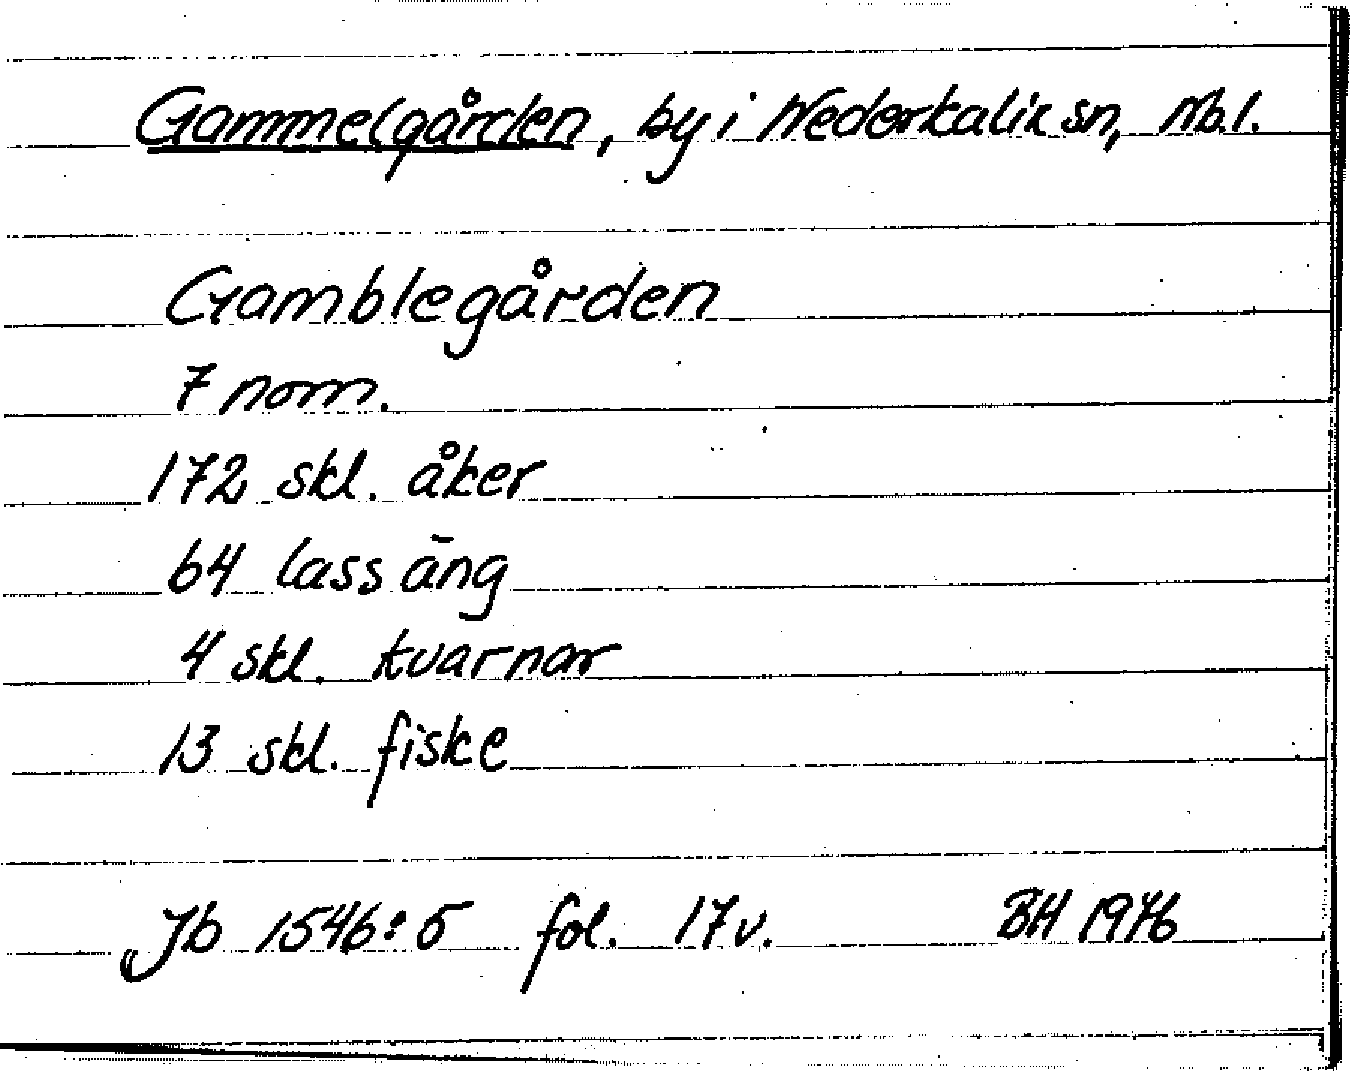 Gammelgården, by i Nederkalix sn, Nb. l.
Gamblegården
7 nom.
172 skl. åker
64 lass äng
4 skl. kvarnar
13 skl. fiske
Jb 1546:5 fol. 17v. BH 1976